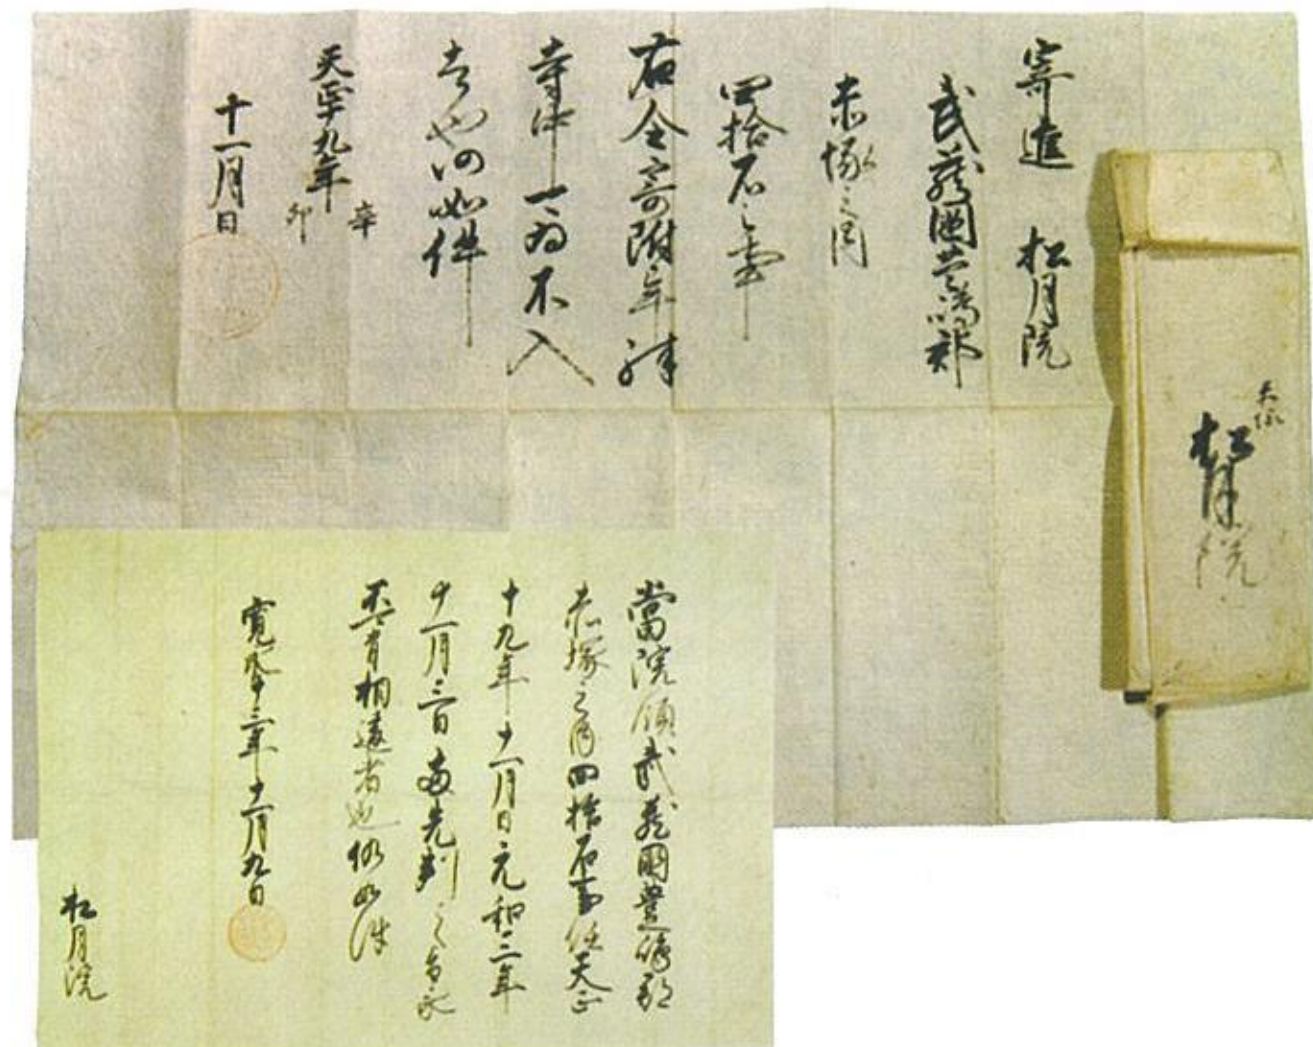 寄進 松月院
武蔵國豊嶋郡
赤塚之内
四拾石之事
右令寄附畢殊
寺中可為不入
者也仍如件
天正十九年 辛卯
十一月日
赤塚
松月院
當院領武蔵國豊嶋郡
赤塚之内四拾石事任天正
十九年十一月日元和三年
十一月三日両先判之旨永
不可有相違者也仍如件
寛永十三年十一月九日
松月院